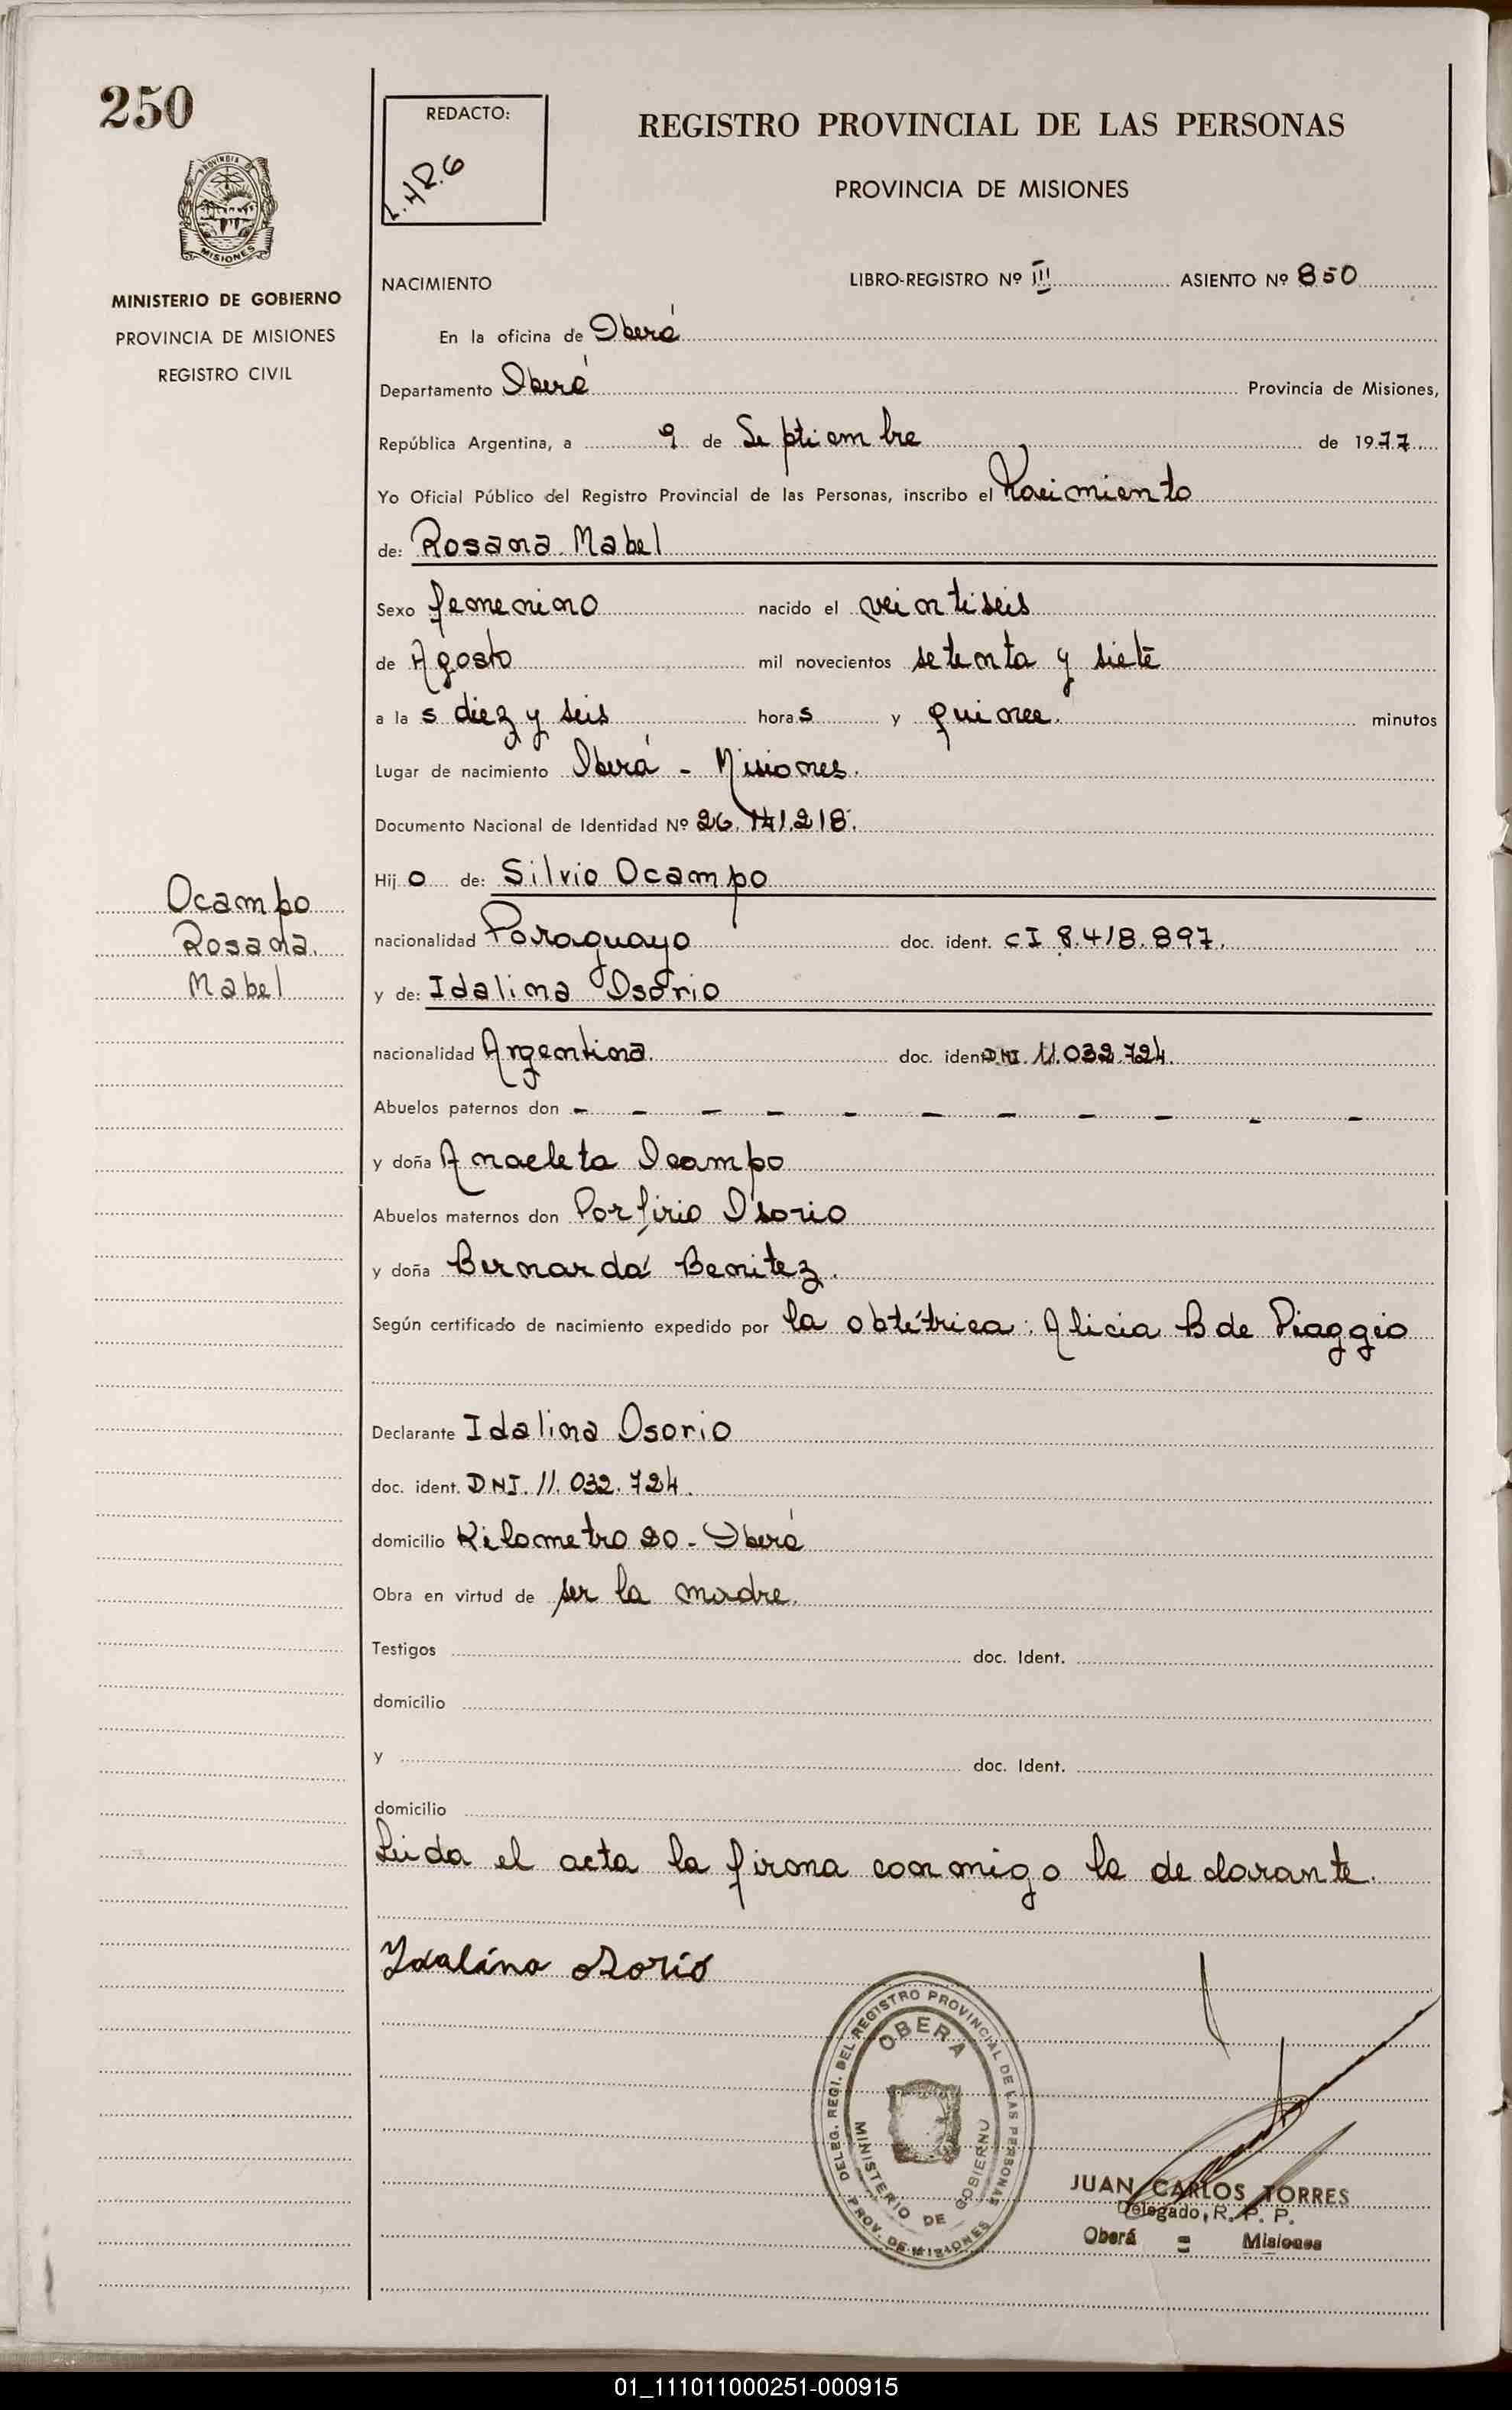 250
REDACTO:
PROVINCIA D
MISIONES
MINISTERIO DE GOBIERNO
PROVINCIA DE MISIONES
REGISTRO CIVIL
REGISTRO PROVINCIAL DE LAS PERSONAS
PROVINCIA DE MISIONES
NACIMIENTO LIBRO-REGISTRO Nº III ASIENTO Nº 850
En la oficina de Oberá
Departamento Oberá Provincia de Misiones,
República Argentina, a 9 de Septiembre de 1977
Yo Oficial Público del Registro Provincial de las Personas, inscribo el Nacimiento
de: Rosana Mabel
Sexo femenino nacido el veintiseis
de Agosto mil novecientos setenta y siete
a las diez y seis horas y quince. minutos
Lugar de nacimiento Oberá - Misiones.
Documento Nacional de Identidad Nº 26.141.218.
Hijo de: Silvio Ocampo
Ocampo
Rosana.
Mabel
nacionalidad Paraguayo doc. ident. CI 8.418.897.
y de: Idalina Osorio
nacionalidad Argentina. doc. ident DNI. 11.032.724.
Abuelos paternos don - - - - - - - - - - -
y doña Anacleta Ocampo
Abuelos maternos don Porfirio Osorio
y doña Bernarda Benitez.
Según certificado de nacimiento expedido por la obtétrica: Alicia B de Piaggio
Declarante Idalina Osorio
doc. ident. DNI. 11.032.724.
domicilio Kilometro 20 - Oberá
Obra en virtud de ser la madre.
Testigos doc. Ident.
domicilio
y doc. Ident.
domicilio
Leida el acta la firma conmigo la declarante.
Ydalina osorio
DELEG. REGI. DEL REGISTRO PROVINCIAL DE LAS PERSONAS
OBERA
MINISTERIO DE GOBIERNO
PROV. DE MISIONES
JUAN CARLOS TORRES
Delegado, R. P. P.
Oberá = Misiones
01_111011000251-000915